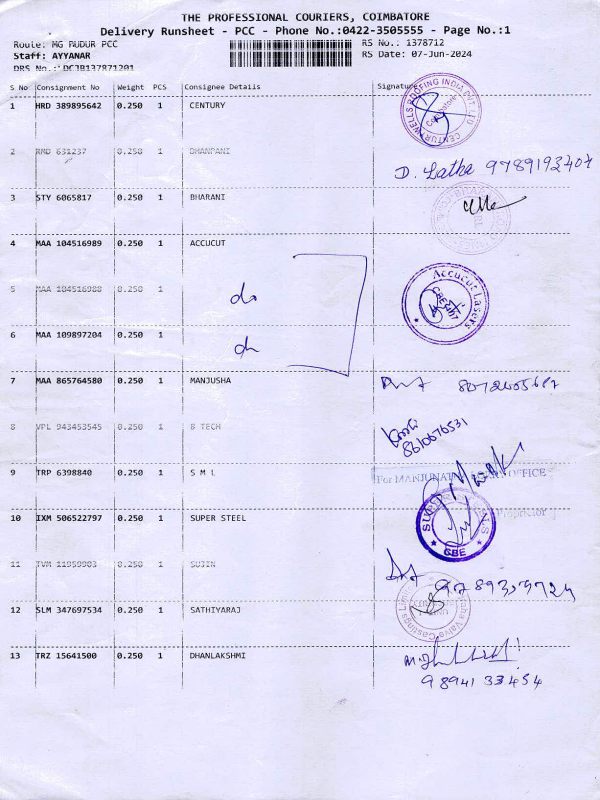 THE PROFESSIONAL COURIERS, COIMBATORE
Delivery Runsheet - PCC - Phone No.:0422-3505555 - Page No.:1
Route: MG PUDUR PCC RS No.: 1378712
Staff: AYYANAR RS Date: 07-Jun-2024
DRS No.: DCJB137871201
S No Consignment No Weight PCS Consignee Details Signature
1 HRD 389895642 0.250 1 CENTURY
2 RMD 631237 0.250 1 DHANPANI
D. Latha 9789193407
3 STY 6065817 0.250 1 BHARANI
4 MAA 104516989 0.250 1 ACCUCUT
Accucut Lasers
5 MAA 104516988 0.250 1 do
6 MAA 109897204 0.250 1
7 MAA 865764580 0.250 1 MANJUSHA
8 VPL 943453545 0.250 1 B TECH
8610676531
9 TRP 6398840 0.250 1 S M L
OFFICE
10 IXM 506522797 0.250 1 SUPER STEEL
Proprietor
CBE
11 TVM 11959983 0.250 1 SUJIN
12 SLM 347697534 0.250 1 SATHIYARAJ
13 TRZ 15641500 0.250 1 DHANLAKSHMI
9894133454